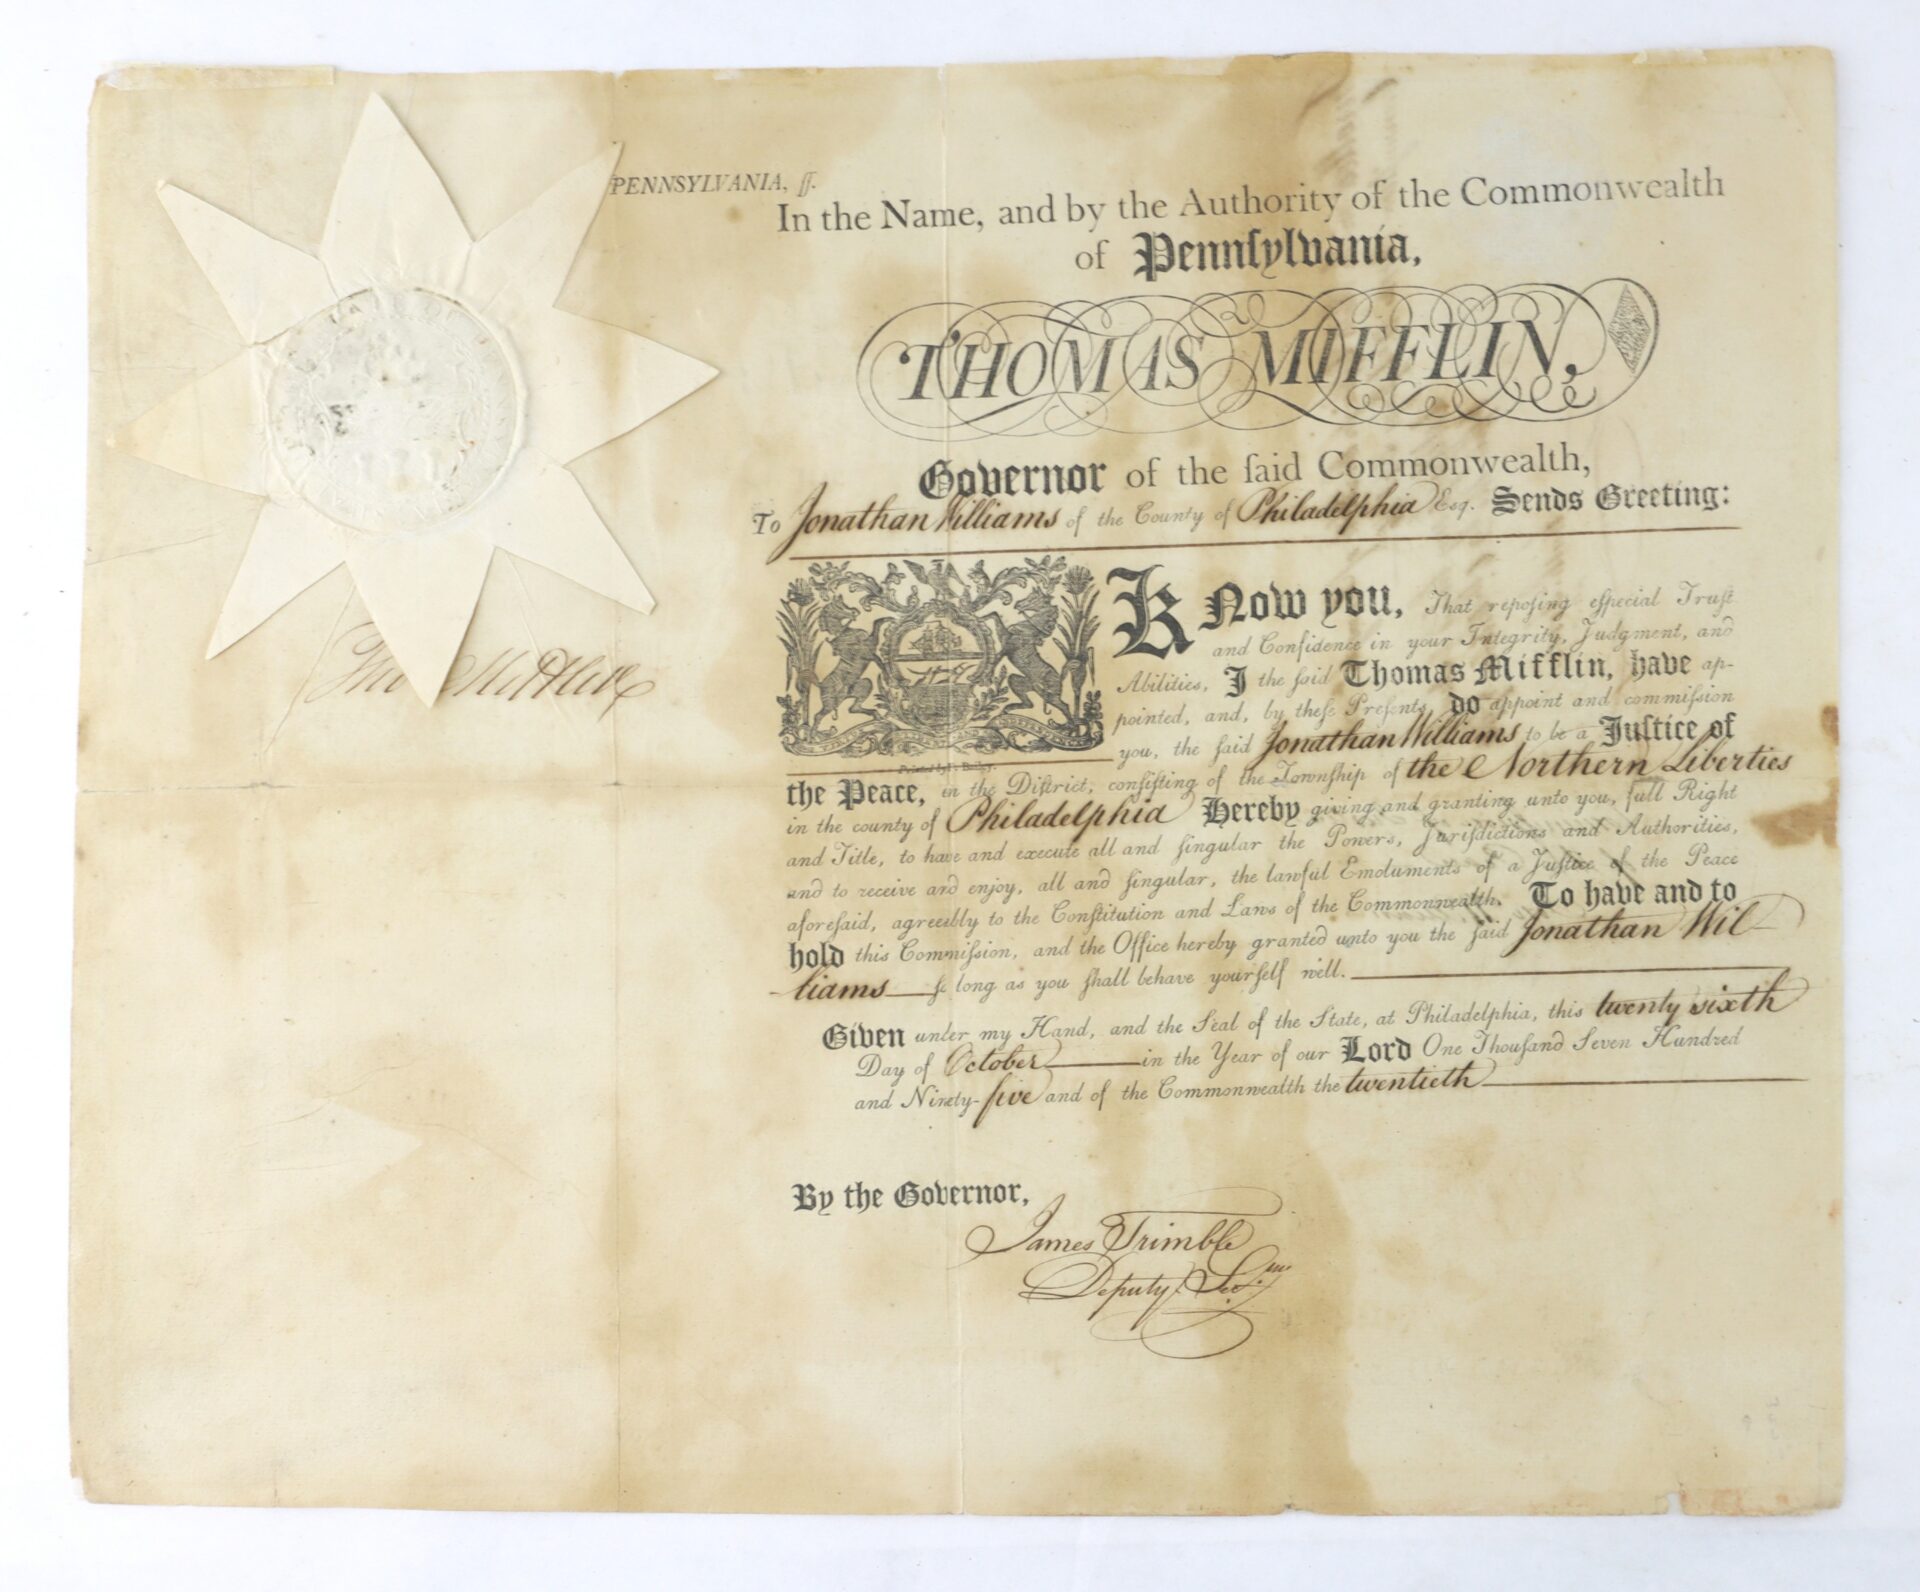 PENNSYLVANIA, ſſ.
In the Name, and by the Authority of the Commonwealth
of Pennſylvania,
THOMAS MIFFLIN,
Governor of the ſaid Commonwealth,
To Jonathan Williams of the County of Philadelphia Esq. Sends Greeting:
KNow you, That repoſing eſpecial Truſt
and Confidence in your Integrity, Judgment, and
Abilities, I the ſaid Thomas Mifflin, have ap-
pointed, and, by theſe Preſents, do appoint and commiſſion
you, the ſaid Jonathan Williams to be a Juſtice of
the Peace, in the Diſtrict, conſiſting of the Township of the Northern Liberties
in the county of Philadelphia Hereby giving and granting unto you, full Right
and Title, to have and execute all and ſingular the Powers, Juriſdictions and Authorities,
and to receive and enjoy, all and ſingular, the lawful Emoluments of a Juſtice of the Peace
aforeſaid, agreeably to the Conſtitution and Laws of the Commonwealth. To have and to
hold this Commiſſion, and the Office hereby granted unto you the ſaid Jonathan Wil-
liams ſo long as you ſhall behave yourſelf well.
Given under my Hand, and the Seal of the State, at Philadelphia, this twenty sixth
Day of October in the Year of our Lord One Thouſand Seven Hundred
and Ninety-five and of the Commonwealth the twentieth
By the Governor,
James Trimble
Deputy Secy
Tho Mifflin
Printed by F. Bailey.